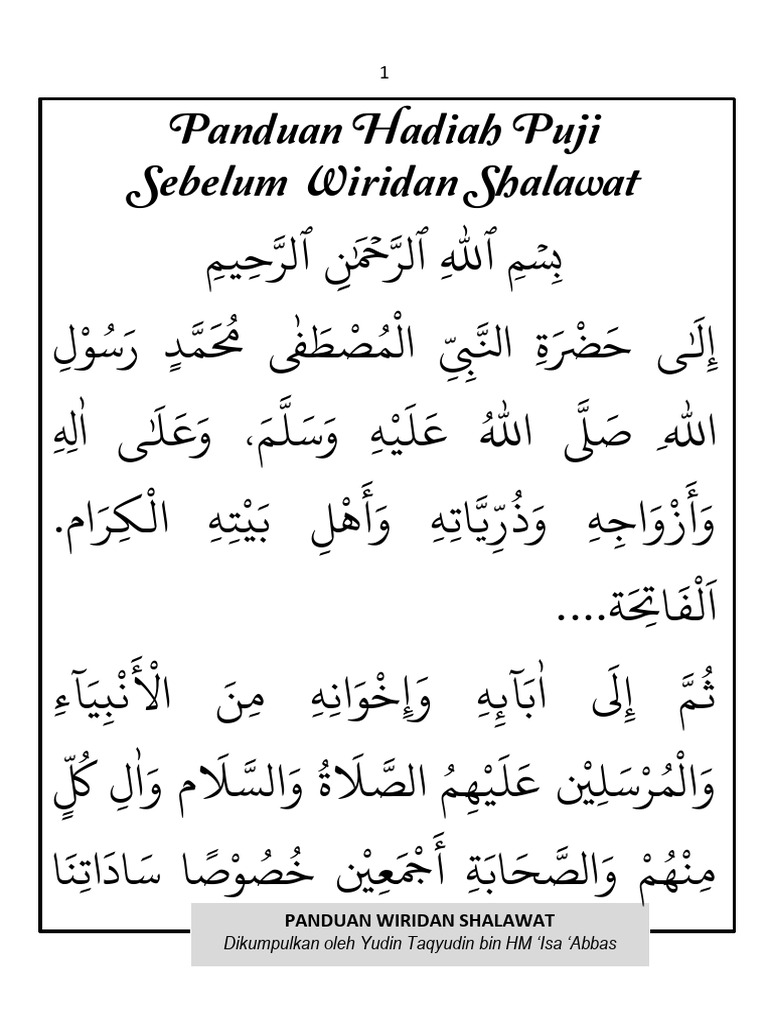 1
Panduan Hadiah Puji
Sebelum Wiridan Shalawat
بِسْمِ ٱللهِ ٱلرَّحْمَٰنِ ٱلرَّحِيمِ
إِلَٰى حَضْرَةِ النَّبِيِّ الْمُصْطَفٰى مُحَمَّدٍ رَسُوْلِ
اللهِ صَلَّى اللهُ عَلَيْهِ وَسَلَّمَ، وَعَلَٰى اٰلِهِ
وَأَزْوَاجِهِ وَذُرِّيَّاتِهِ وَأَهْلِ بَيْتِهِ الْكِرَام.
اَلْفَاتِحَة....
ثُمَّ إِلَى اٰبَآئِهِ وَإِخْوَانِهِ مِنَ الْأَنْبِيَآءِ
وَالْمُرْسَلِيْن عَلَيْهِمُ الصَّلَاةُ وَالسَّلَام وَاٰلِ كُلٍّ
مِنْهُمْ وَالصَّحَابَةِ أَجْمَعِيْن خُصُوْصًا سَادَاتِنَا
PANDUAN WIRIDAN SHALAWAT
Dikumpulkan oleh Yudin Taqyudin bin HM ‘Isa ‘Abbas